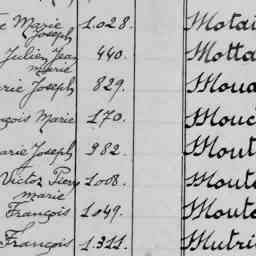 Marie Joseph 1.028. Motai
Julien Jean Marie 440. Motta
Marie Joseph 829. Moua
François Marie 170. Mouc
Marie Joseph 982. Mout
Victor Pierre Marie 1008. Mout
François 1.049. Mout
François 1.311. Mutri